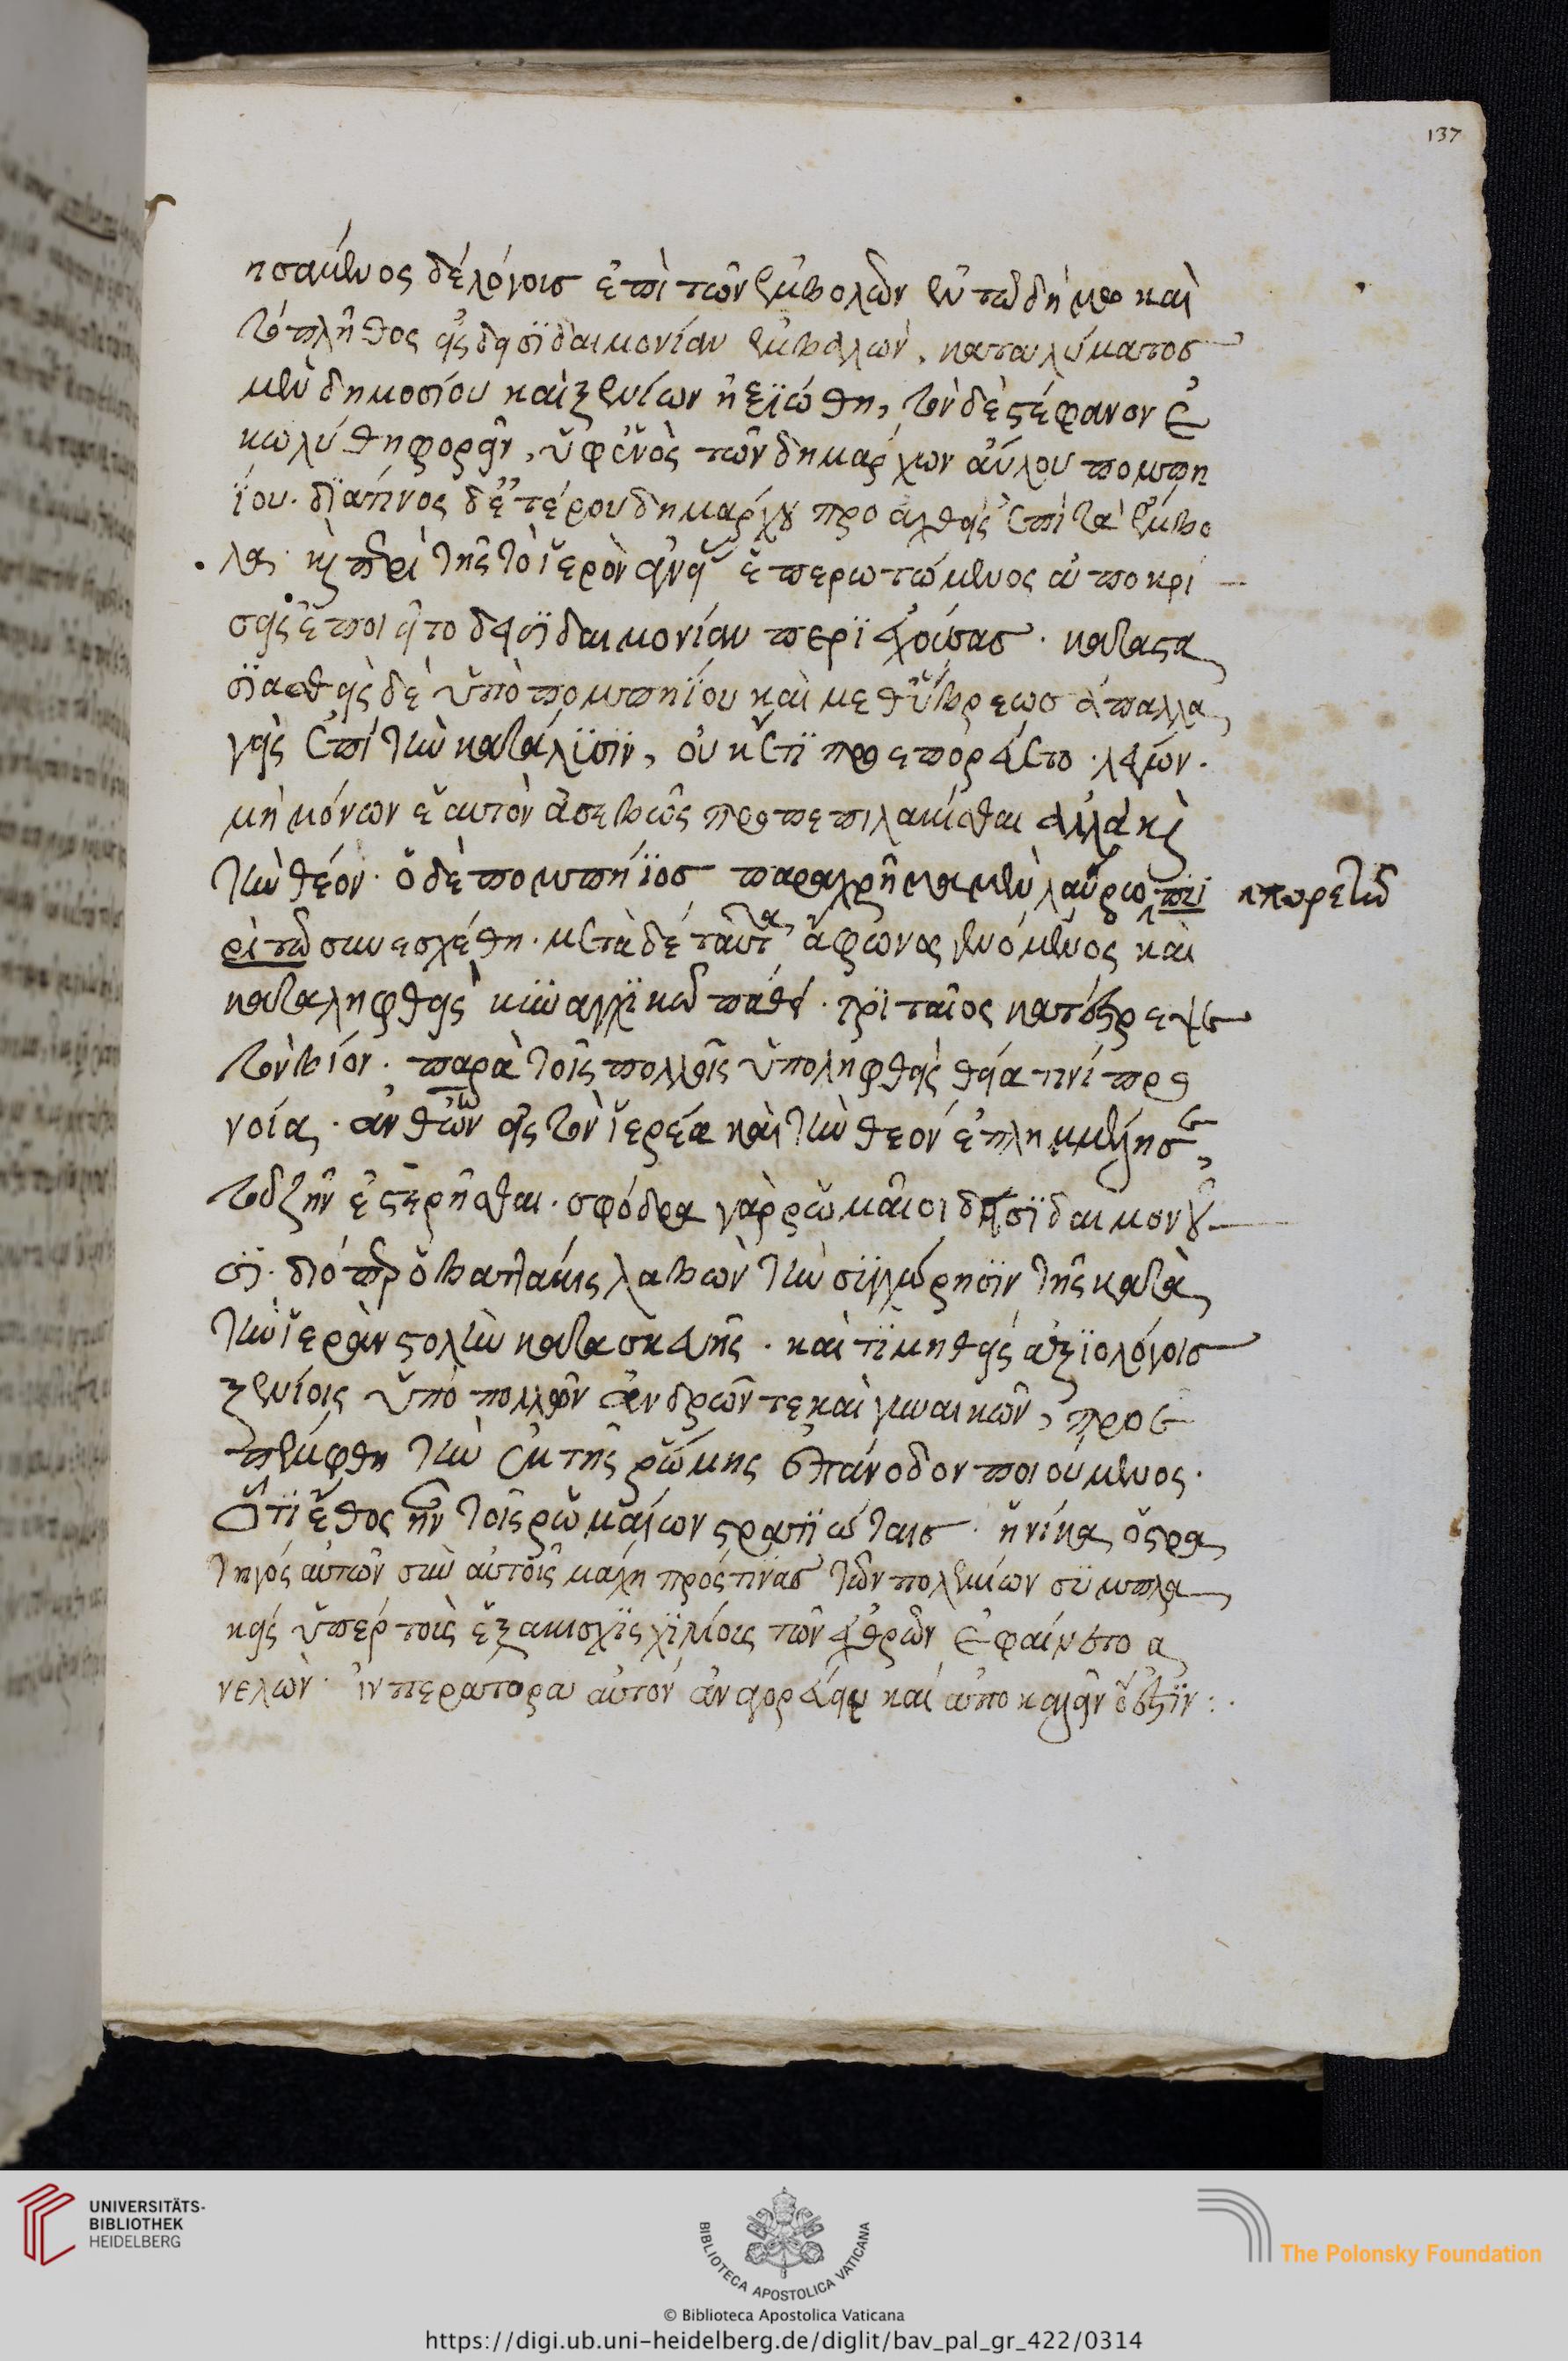 137
ησαμενος δὲ λόγοισ ἐπὶ τῶν ἐμβολῶν ἐν τῶ δήμω καὶ
τὸ πλῆθος εἰς δεισϊδαιμονίαν ἐμβαλὼν, καταλύματοσ
μὲν δημοσίου καὶ ξενίων ἠξϊώθη, τὸν δὲ στέφανον ἐ
κωλύθη φορεῖν, ὑφ ἑνὸς τῶν δημάρχων αὔλου πομπη
ΐου. διά τινος δὲ ἑτέρου δημάρχου προαχθεὶς ἐπὶ τὰ ἔμβο
λα. καὶ περὶ τῆς τὸ ἱερὸν ἐπερωτώμενος ἀποκρί
σεις ἐποιεῖτο δεισϊδαιμονίαν περϊεχούσασ. καταστα
σϊασθεὶς δὲ ὑπὸ πομπηΐου καὶ μεθ ὕβρεωσ ἀπαλλα
γεὶς ἐπὶ τὴν κατάλϋσϊν, οὐκ ἔτϊ προεπορεύετο. λέγων.
μὴ μόνων ἑαυτὸν ἀσεβῶς προπεπιλακίσθαι ἀλλὰ καὶ
τὴν θεόν. ὁ δὲ πομπήϊοσ παραχρῆμα μὲν λαύρω πι
ρὶ τῶ συνεσχέθη. μετὰ δὲ ταῦτα ἄφωνος γενόμενος καὶ
καταληφθεὶς κϋναγχϊκῶ πάθει. τρϊταῖος κατέστρεψε
τὸν βίον. παρὰ τοῖς πολλοῖς ὑποληφθεὶς θεία τινὶ προ
νοία. ἀνθ ὧν εἰς τὸν ἱερέα καὶ τὴν θεὸν ἐπλημμέλησε,
τοῦ ζῆν ἐστερῆσθαι. σφόδρα γὰρ ῥωμαῖοι δεισϊδαιμονοῦ
σϊ. διόπερ ὁ βατάκις λαβὼν τὴν σϋγχώρησϊν τῆς κατὰ
τὴν ἱερὰν στολὴν κατασκευῆς. καὶ τϊμηθεὶς ἀξϊολόγοισ
ξενίοις ὑπὸ πολλῶν ἀνδρῶν τε καὶ γυναικῶν, προε
πέμφθη τὴν ἐκ τῆς ῥώμης ἐπάνοδον ποιούμενος.
Ὅτϊ ἔθος ἦν τοῖς ῥωμαίων στρατϊώταισ. ἡνίκα ὁ στρα
τηγὸς αὐτῶν σὺν αὐτοῖς μάχη πρός τϊνασ τῶν πολεμίων σϋμπλα
κεὶς ὑπὲρ τοὺς ἑξακισχϊς χϊλίους τῶν ἐχθρῶν ἐφαίνετο ἀ
νελὼν. ἰνπεράτορα αὐτὸν ἀναγορεύειν καὶ ἀποκαλεῖν ὅ ἐστϊν:.
ἢ πυρετῶ
UNIVERSITÄTS-
BIBLIOTHEK
HEIDELBERG
BIBLIOTECA APOSTOLICA VATICANA
The Polonsky Foundation
© Biblioteca Apostolica Vaticana
https://digi.ub.uni-heidelberg.de/diglit/bav_pal_gr_422/0314